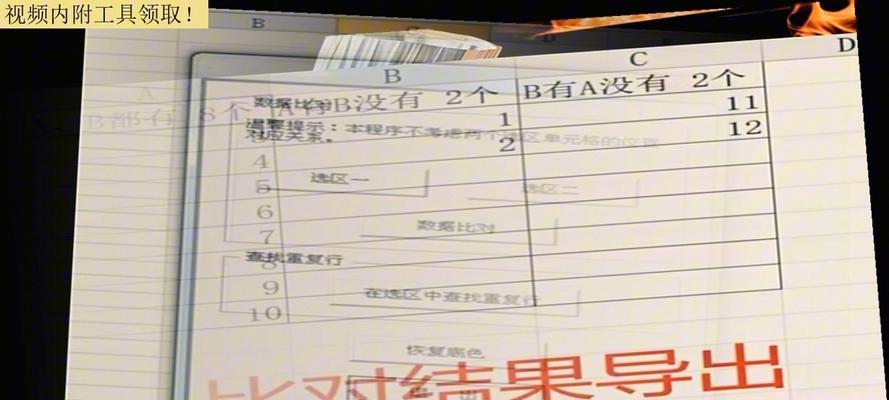 视频内附工具领取！
B
D
B
C
D
A
AB都有 8个
A有B没有 2个
B有A没有 2个
数据比对
1
11
温馨提示：本程序不考虑两个选区单元格的位置
对应关系。
2
12
3
4
5
选区一
选区二
6
7
数据比对
查找重复行
8
9
在选区中查找重复行
10
恢复底色
比对结果导出
退出